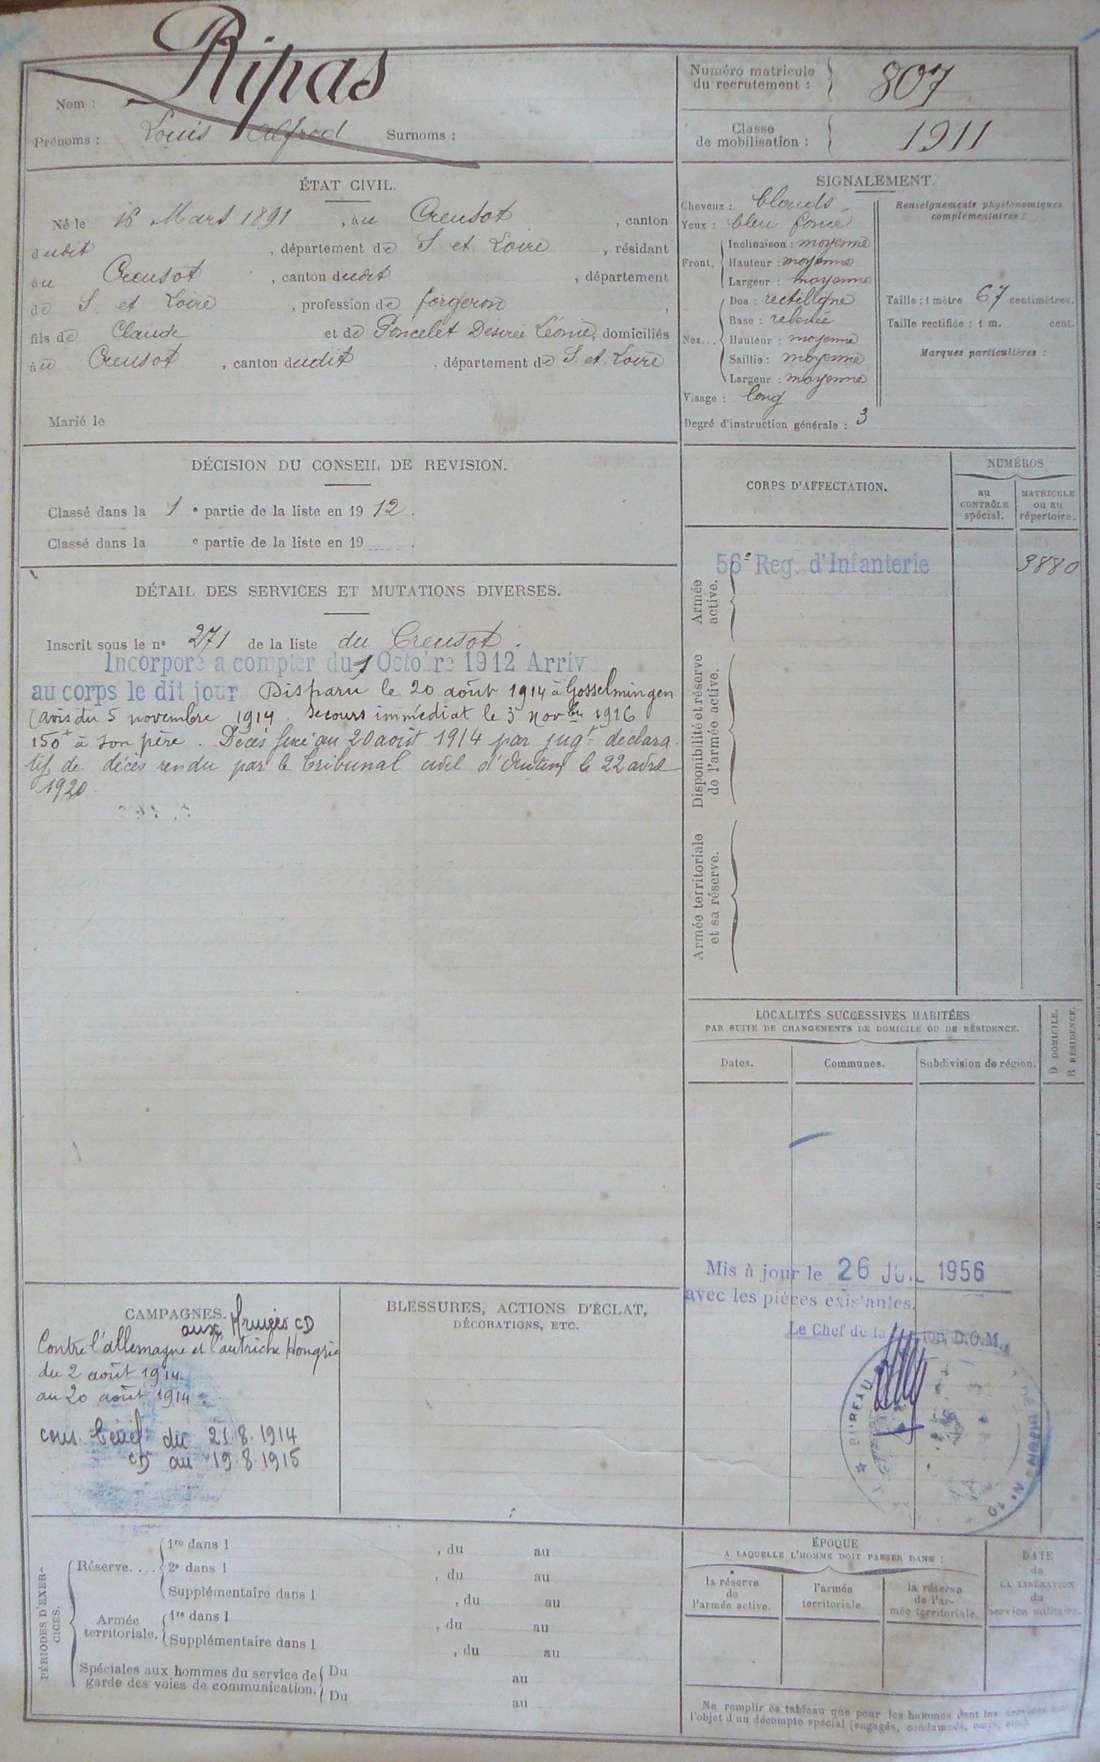 Ripas
Nom :
Prénoms : Louis Alfred Surnoms :
Numéro matricule
du recrutement : 807
Classe
de mobilisation : 1911
ÉTAT CIVIL.
Né le 16 Mars 1891, au Creusot, canton
dudit, département de S. et Loire, résidant
au Creusot, canton dudit, département
de S. et Loire, profession de forgeron,
fils de Claude et de Poncelet Desirée Léonie, domiciliés
au Creusot, canton dudit, département de S. et Loire
Marié le
SIGNALEMENT.
Cheveux : blonds
Yeux : bleu foncé
Front. Inclinaison : moyenne
Hauteur : moyenne
Largeur : moyenne
Nez... Dos : rectiligne
Base : relevée
Hauteur : moyenne
Saillie : moyenne
Largeur : moyenne
Visage : long
Degré d'instruction générale : 3
Renseignements physionomiques
complémentaires :
Taille : 1 mètre 67 centimètres.
Taille rectifiée : 1 m. cent.
Marques particulières :
DÉCISION DU CONSEIL DE REVISION.
Classé dans la 1e partie de la liste en 1912.
Classé dans la e partie de la liste en 19 .
DÉTAIL DES SERVICES ET MUTATIONS DIVERSES.
Inscrit sous le no 271 de la liste du Creusot.
Incorporé a compter du 1 Octobre 1912 Arriv
au corps le dit jour Disparu le 20 août 1914 à Gosselmingen
(avis du 5 novembre 1914. Secours immédiat le 3 Novbre 1916
150f à son père. Décès fixé au 20 août 1914 par jugt déclara-
tif de décès rendu par le Tribunal civil d'Autun le 22 avril
1920
CORPS D'AFFECTATION.
NUMÉROS
au
CONTRÔLE
spécial.
MATRICULE
ou au
répertoire.
Armée
active.
56e Reg. d'Infanterie 3880
Disponibilité et réserve
de l'armée active.
Armée territoriale
et sa réserve.
LOCALITÉS SUCCESSIVES HABITÉES
PAR SUITE DE CHANGEMENTS DE DOMICILE OU DE RÉSIDENCE.
Dates. Communes. Subdivision de région.
D DOMICILE.
R RÉSIDENCE.
Mis à jour le 26 JUIL 1956
avec les pièces existantes.
Le Chef de la Section D.O.M.
BUREAU
CAMPAGNES.
aux Armées CD
Contre l'allemagne et l'autriche Hongrie
du 2 août 1914
au 20 août 1914
cons. bénéf du 21.8.1914
CD au 19.8.1915
BLESSURES, ACTIONS D'ÉCLAT,
DÉCORATIONS, ETC.
PÉRIODES D'EXER-
CICES.
Réserve.... 1re dans l , du au
2e dans l , du au
Supplémentaire dans l , du au
Armée
territoriale. 1re dans l , du au
Supplémentaire dans l , du au
Spéciales aux hommes du service de
garde des voies de communication. Du au
Du au
ÉPOQUE
A LAQUELLE L'HOMME DOIT PASSER DANS :
la réserve
de
l'armée active.
l'armée
territoriale.
la réserve
de l'ar-
mée territoriale.
DATE
de
LA LIBÉRATION
du
service militaire.
Ne remplir ce tableau que pour les hommes dont les services
l'objet d'un décompte spécial (engagés, condamnés,